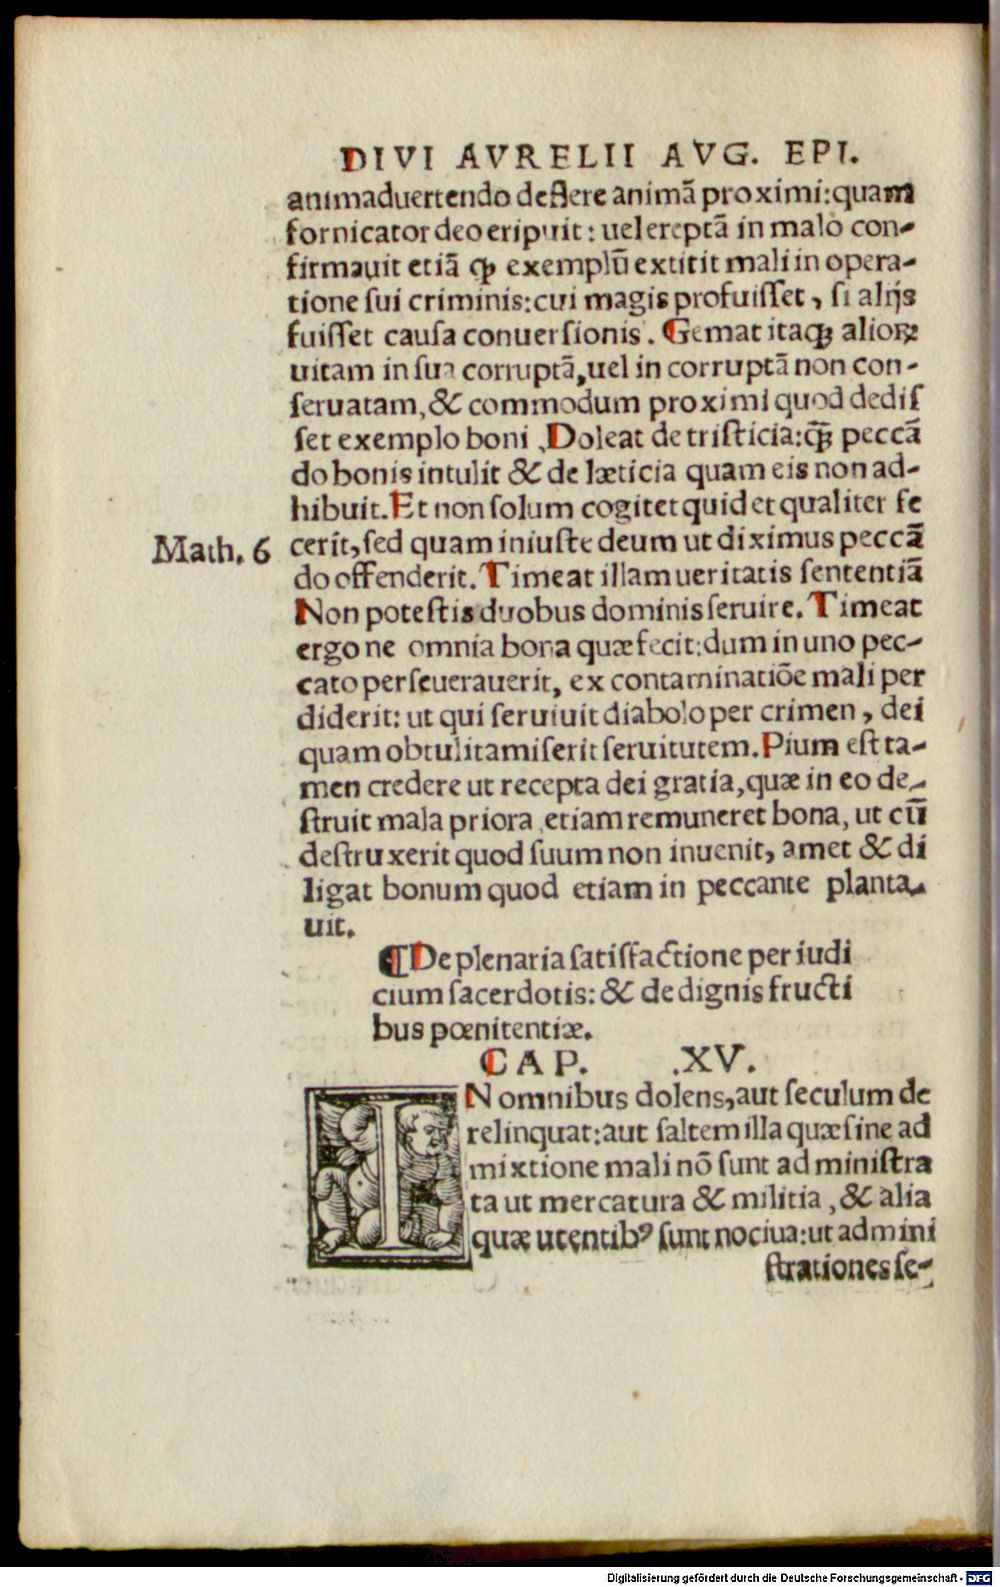 DIVI AVRELII AVG. EPI.
animaduertendo deflere animā proximi: quam
fornicator deo eripuit: uel ereptā in malo con-
firmauit etiā ꝙ exemplū extitit mali in opera-
tione sui criminis: cui magis profuisset, si alijs
fuisset causa conuersionis. Gemat itaqꝫ alioꝝ
uitam in sua corruptā, uel in corruptā non con-
seruatam, & commodum proximi quod dedis
set exemplo boni. Doleat de tristicia: q̄ꝫ peccā
do bonis intulit & de læticia quam eis non ad-
hibuit. Et non solum cogitet quid et qualiter fe
Math. 6
cerit, sed quam iniuste deum ut diximus peccā
do offenderit. Timeat illam ueritatis sententiā
Non potestis duobus dominis seruire. Timeat
ergo ne omnia bona quæ fecit: dum in uno pec-
cato perseuerauerit, ex contaminatiōe mali per
diderit: ut qui seruiuit diabolo per crimen, dei
quam obtulit amiserit seruitutem. Pium est ta-
men credere ut recepta dei gratia, quæ in eo de-
struit mala priora etiam remuneret bona, ut cū
destruxerit quod suum non inuenit, amet & di
ligat bonum quod etiam in peccante planta-
uit.
¶De plenaria satisfactione per iudi
cium sacerdotis: & de dignis fructi
bus pœnitentiæ.
CAP. .XV.
IN omnibus dolens, aut seculum de
relinquat: aut saltem illa quæ sine ad
mixtione mali nō sunt administra
ta ut mercatura & militia, & alia
quæ utentibꝰ sunt nociua: ut admini
strationes se-
Digitalisierung gefördert durch die Deutsche Forschungsgemeinschaft - DFG